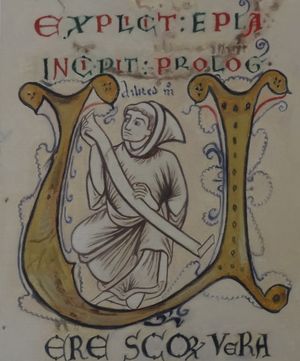 EXPLICT : EPLA
INCIPIT : PROLOG
dilecto m
U
ERE SCOR VERA